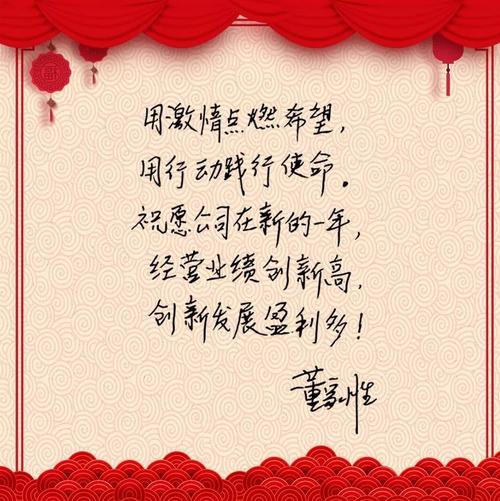 用激情点燃希望,
用行动践行使命。
祝愿公司在新的一年,
经营业绩创新高,
创新发展盈利多!
董富性